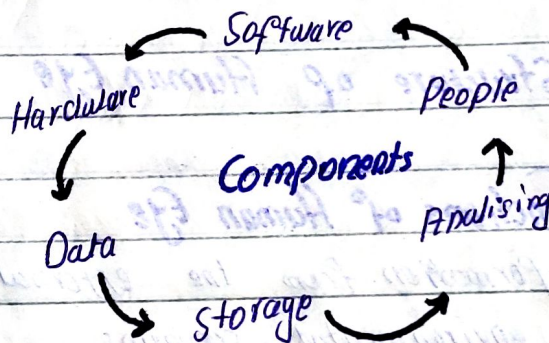 Software
Hardware
People
Components
Analising
Data
Storage